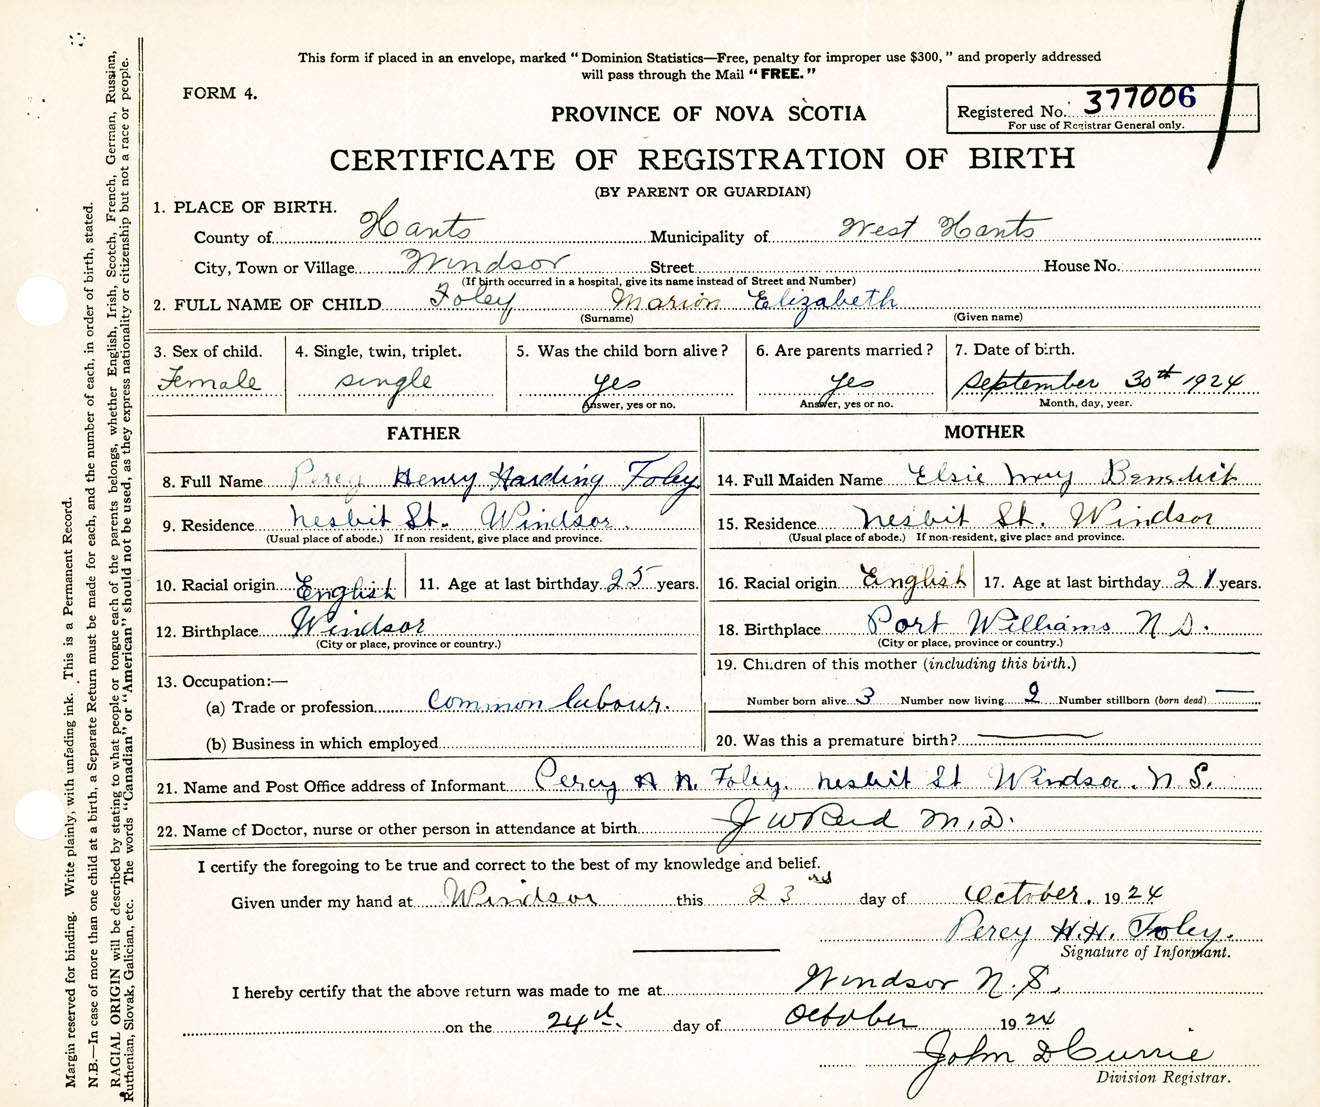 This form if placed in an envelope, marked "Dominion Statistics—Free, penalty for improper use $300," and properly addressed
will pass through the Mail "FREE."
FORM 4.
PROVINCE OF NOVA SCOTIA
Registered No. 377006
For use of Registrar General only.
CERTIFICATE OF REGISTRATION OF BIRTH
(BY PARENT OR GUARDIAN)
1. PLACE OF BIRTH.
County of Hants Municipality of West Hants
City, Town or Village Windsor Street House No.
(If birth occurred in a hospital, give its name instead of Street and Number)
2. FULL NAME OF CHILD Foley Marion Elizabeth
(Surname) (Given name)
3. Sex of child. 4. Single, twin, triplet. 5. Was the child born alive? 6. Are parents married? 7. Date of birth.
Female single yes yes September 30th 1924
Answer, yes or no. Answer, yes or no. Month, day, year.
FATHER MOTHER
8. Full Name Percy Henry Harding Foley 14. Full Maiden Name Elsie May Benedict
9. Residence Nesbit St. Windsor. 15. Residence Nesbit St. Windsor
(Usual place of abode.) If non resident, give place and province. (Usual place of abode.) If non-resident, give place and province.
10. Racial origin English 11. Age at last birthday 25 years. 16. Racial origin English 17. Age at last birthday 21 years.
12. Birthplace Windsor 18. Birthplace Port Williams N S.
(City or place, province or country.) (City or place, province or country.)
19. Children of this mother (including this birth.)
13. Occupation:—
(a) Trade or profession common labour. Number born alive 3 Number now living 2 Number stillborn (born dead) —
(b) Business in which employed 20. Was this a premature birth? —
21. Name and Post Office address of Informant Percy H H. Foley. Nesbit St Windsor. N. S.
22. Name of Doctor, nurse or other person in attendance at birth J W Reid M.D.
I certify the foregoing to be true and correct to the best of my knowledge and belief.
Given under my hand at Windsor this 23rd day of October. 1924
Percy H.H. Foley.
Signature of Informant.
I hereby certify that the above return was made to me at Windsor N.S.
on the 24th. day of October 1924
John D Currie
Division Registrar.
Margin reserved for binding. Write plainly, with unfading ink. This is a Permanent Record.
N.B.—In case of more than one child at a birth, a Separate Return must be made for each, and the number of each, in order of birth, stated.
RACIAL ORIGIN will be described by stating to what people or tongue each of the parents belongs, whether English, Irish, Scotch, French, German, Russian,
Ruthenian, Slovak, Galician, etc. The words "Canadian" or "American" should not be used, as they express nationality or citizenship but not a race or people.